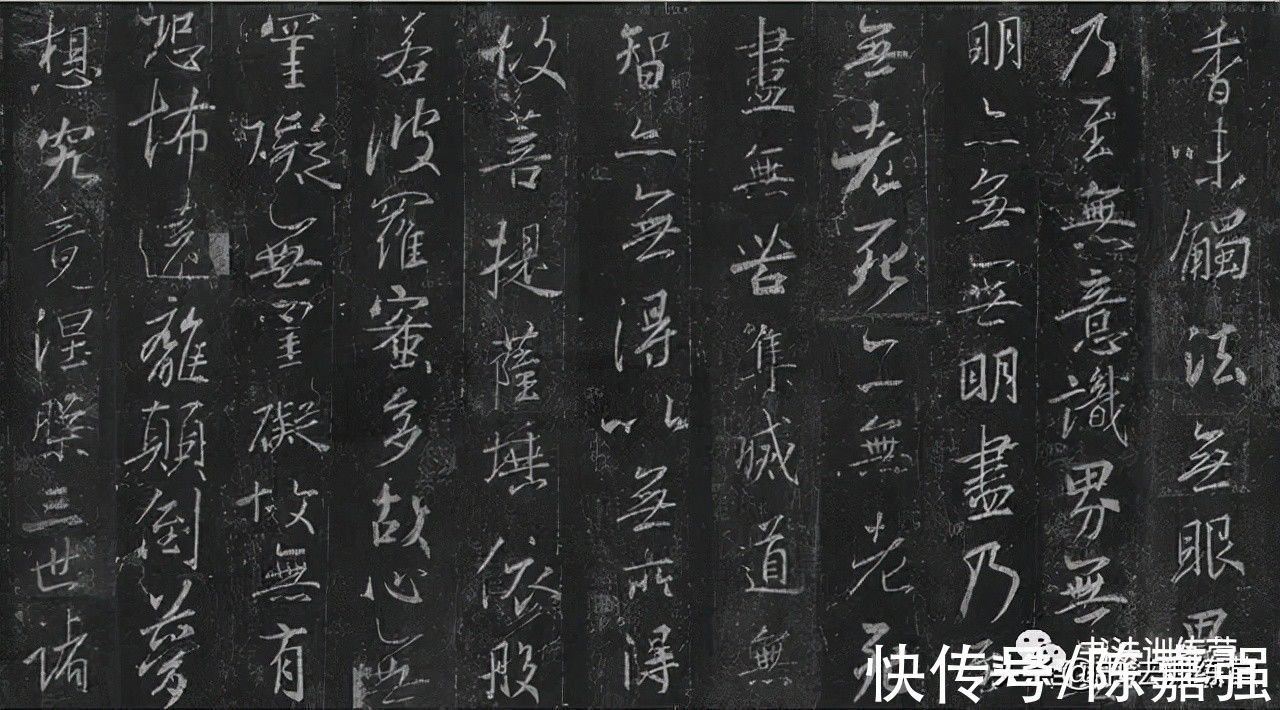 香味觸法無眼界
乃至無意識界無
明亦無無明盡乃
無老死亦無老死
盡無苦集滅道無
智亦無得以無所得
故菩提薩埵依般
若波羅蜜多故心無
罣礙無罣礙故無有
恐怖遠離顛倒夢
想究竟涅槃三世諸
书法训练营
快传号/陈嘉强